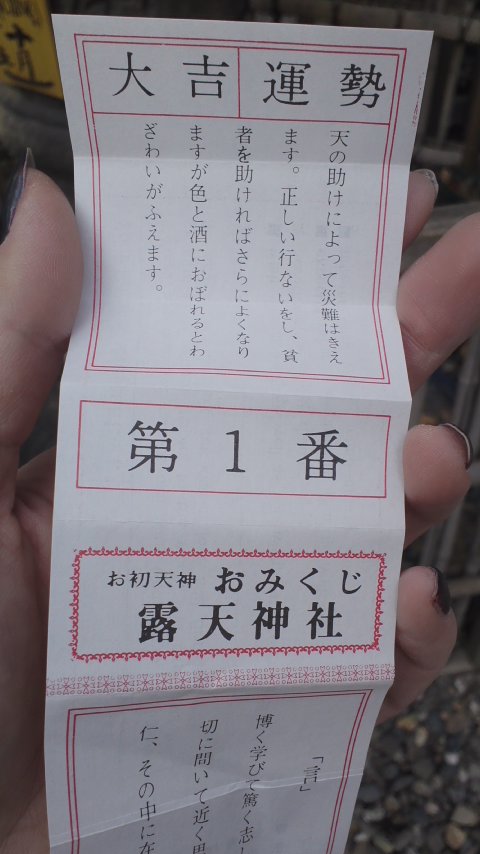 大吉
運勢
天の助けによって災難はきえ
ます。正しい行ないをし、貧
者を助ければさらによくなり
ますが色と酒におぼれるとわ
ざわいがふえます。
第1番
お初天神 おみくじ
露天神社
「言」
博く学びて篤く志し
切に問いて近く思
仁、その中に在